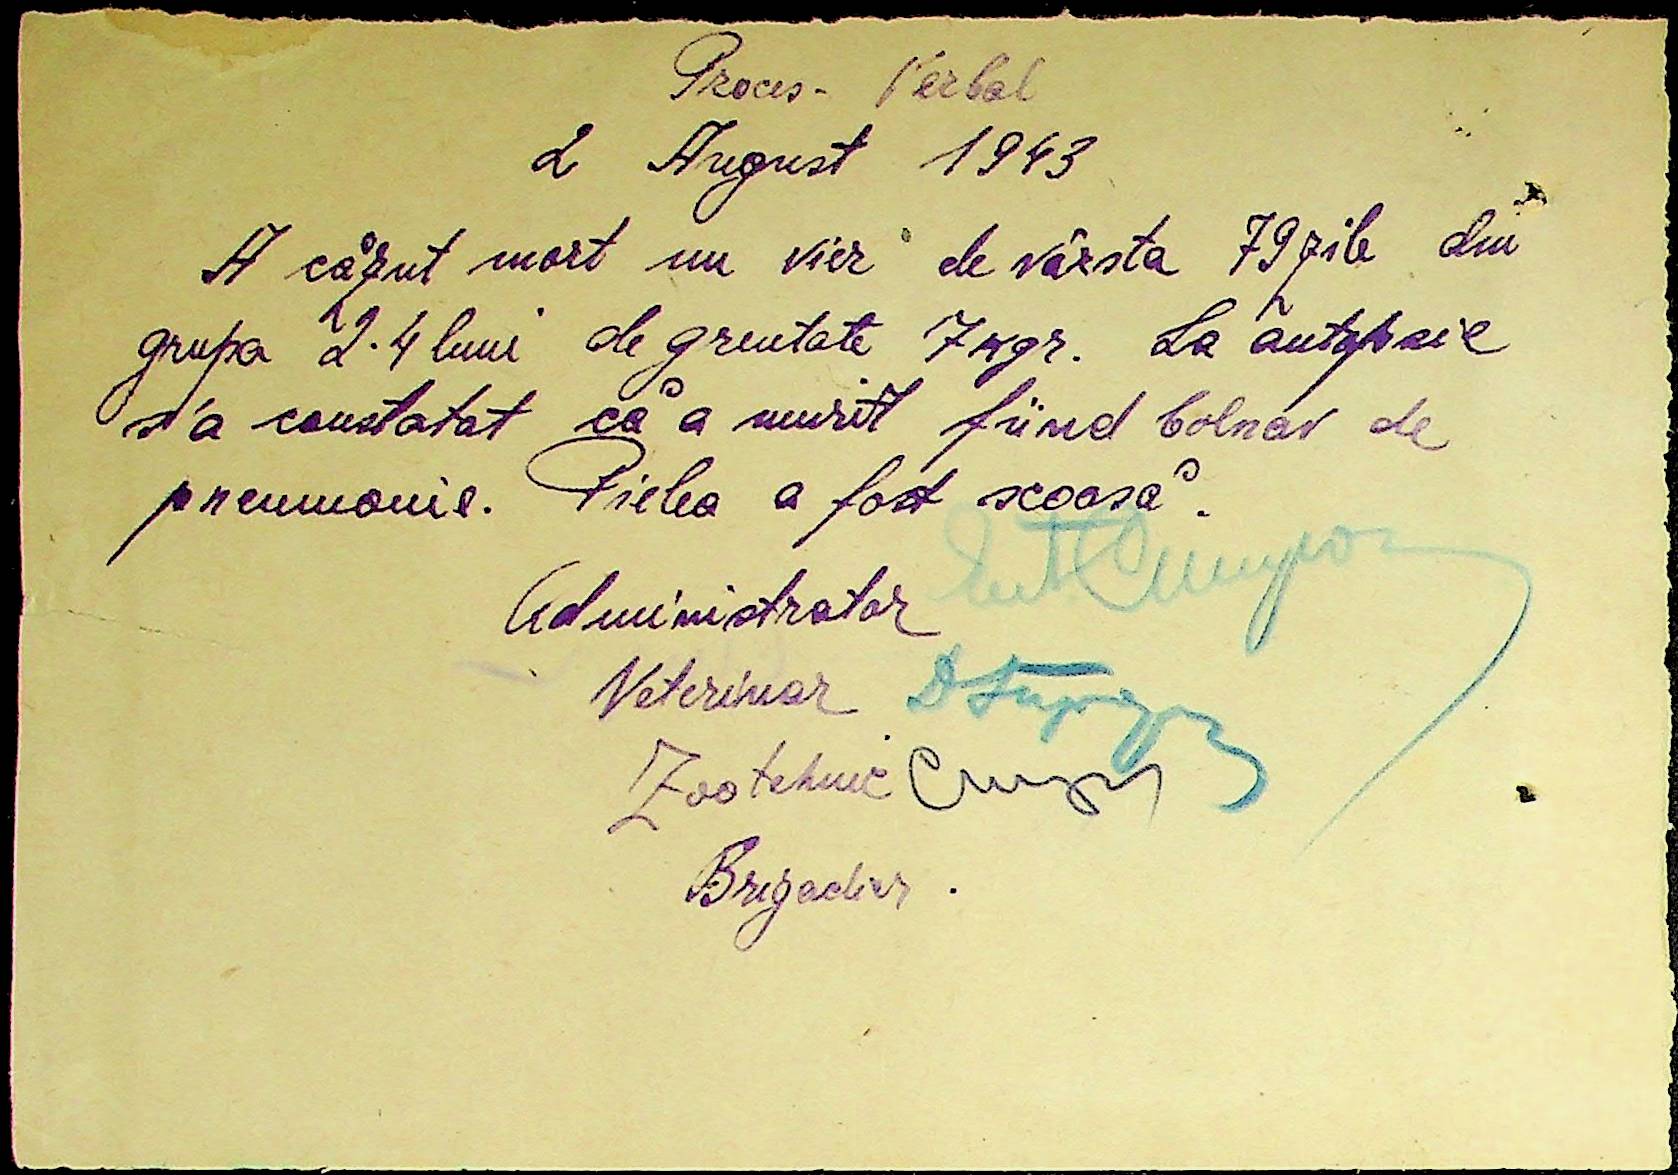 Proces-Verbal
2 August 1943
A căzut mort un vier de vârsta 79 zile din
grupa 2-4 luni de greutate 7 kgr. La autopsie
s'a constatat că a murit fiind bolnav de
pneumonie. Pielea a fost scoasă.
Administrator
Veterinar
Zootehnic
Brigadier.